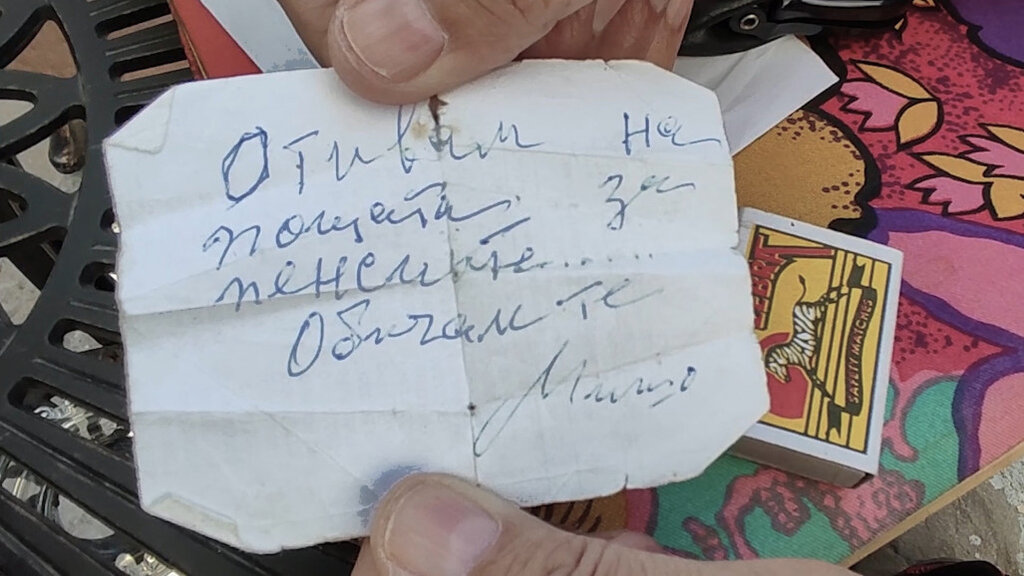 Отивам на
пощата за
пенсиите......
Обичам те
ZEBRA
SAFETY MATCHES